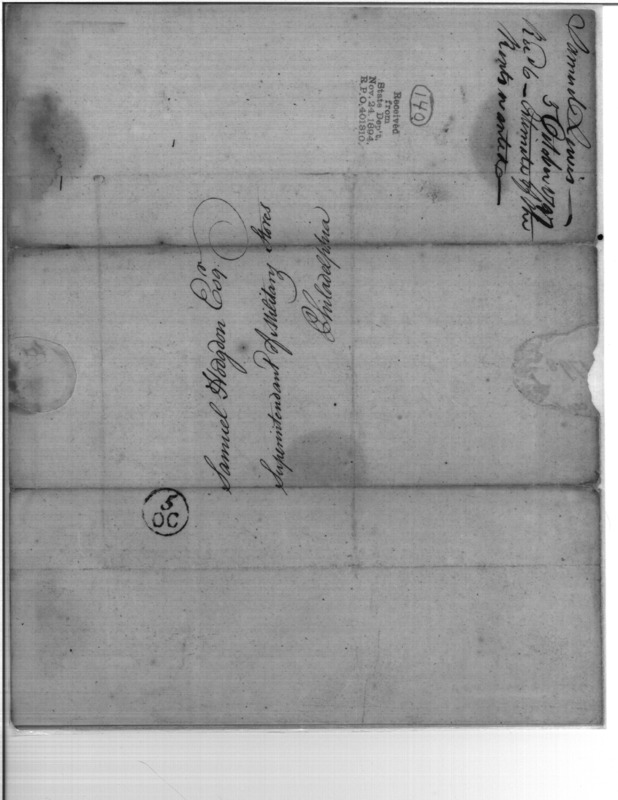 Samuel Lewis
5 October 1797
Rec'd 6 – Estimate of the
wanted
140
Received
from
State Dep't.
Nov. 24 1894
R.P.O. 401810.
Samuel Hodgdon Esqr.
Superintendant of Military Stores
Philadelphia
5
OC